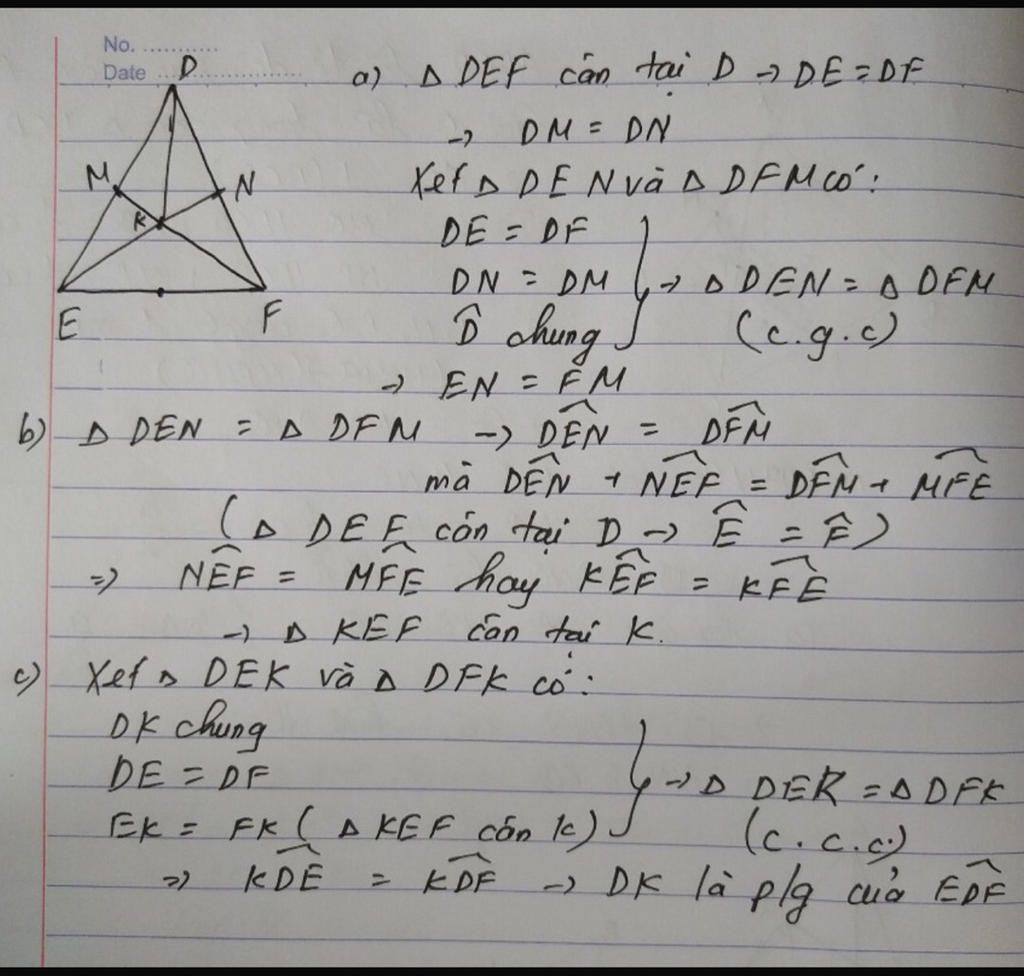 No. ............
Date ........................
D
M
N
K
E
F
a) Δ DEF cân tại D → DE = DF
→ DM = DN
Xét Δ DEN và Δ DFM có:
DE = DF
DN = DM
D̂ chung
→ Δ DEN = Δ DFM
(c.g.c)
→ EN = FM
b) Δ DEN = Δ DFM → DÊN = DF̂M
mà DÊN + NÊF = DF̂M + MF̂E
(Δ DEF cân tại D → Ê = F̂)
=> NÊF = MF̂E hay KÊF = KF̂E
→ Δ KEF cân tại K.
c) Xét Δ DEK và Δ DFK có:
DK chung
DE = DF
EK = FK (Δ KEF cân K)
→ Δ DEK = Δ DFK
(c.c.c)
=> KD̂E = KD̂F → DK là p/g của ED̂F